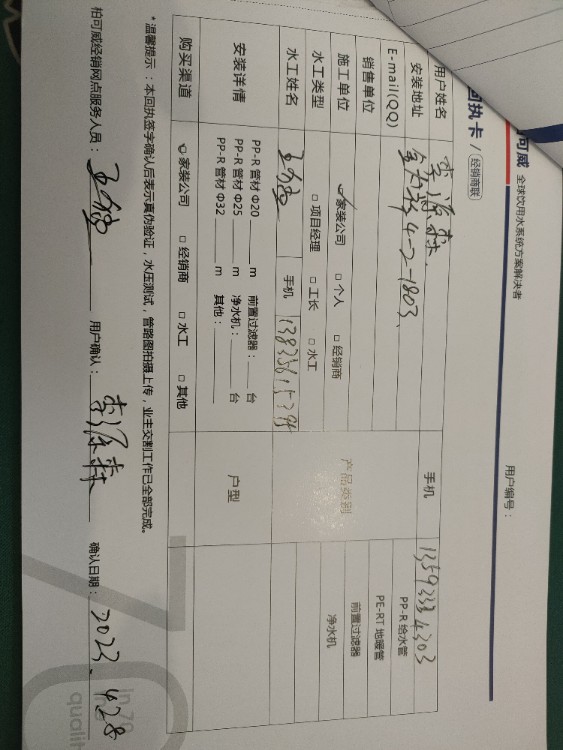 可威 全球饮用水系统方案解决者
回执卡 / 经销商联
用户编号：
用户姓名 李源森 手机 13593334303
安装地址 4-2-1803
E-mail(QQ) 产品类别 PP-R 给水管
销售单位 PE-RT 地暖管
施工单位 ☑家装公司 □个人 □经销商 前置过滤器
水工类型 □项目经理 □工长 □水工 净水机
水工姓名 手机
安装详情 PP-R 管材 Φ20 ____ m 前置过滤器：____ 台 户型
PP-R 管材 Φ25 ____ m 净水机：____ 台
PP-R 管材 Φ32 ____ m 其他：____
购买渠道 ☑家装公司 □经销商 □水工 □其他
*温馨提示：本回执签字确认后表示真伪验证，水压测试，管路图拍摄上传，业主交割工作已全部完成。
柏可威经销网点服务人员： 用户确认：李源森 确认日期：2023.4.28
in 70
quality